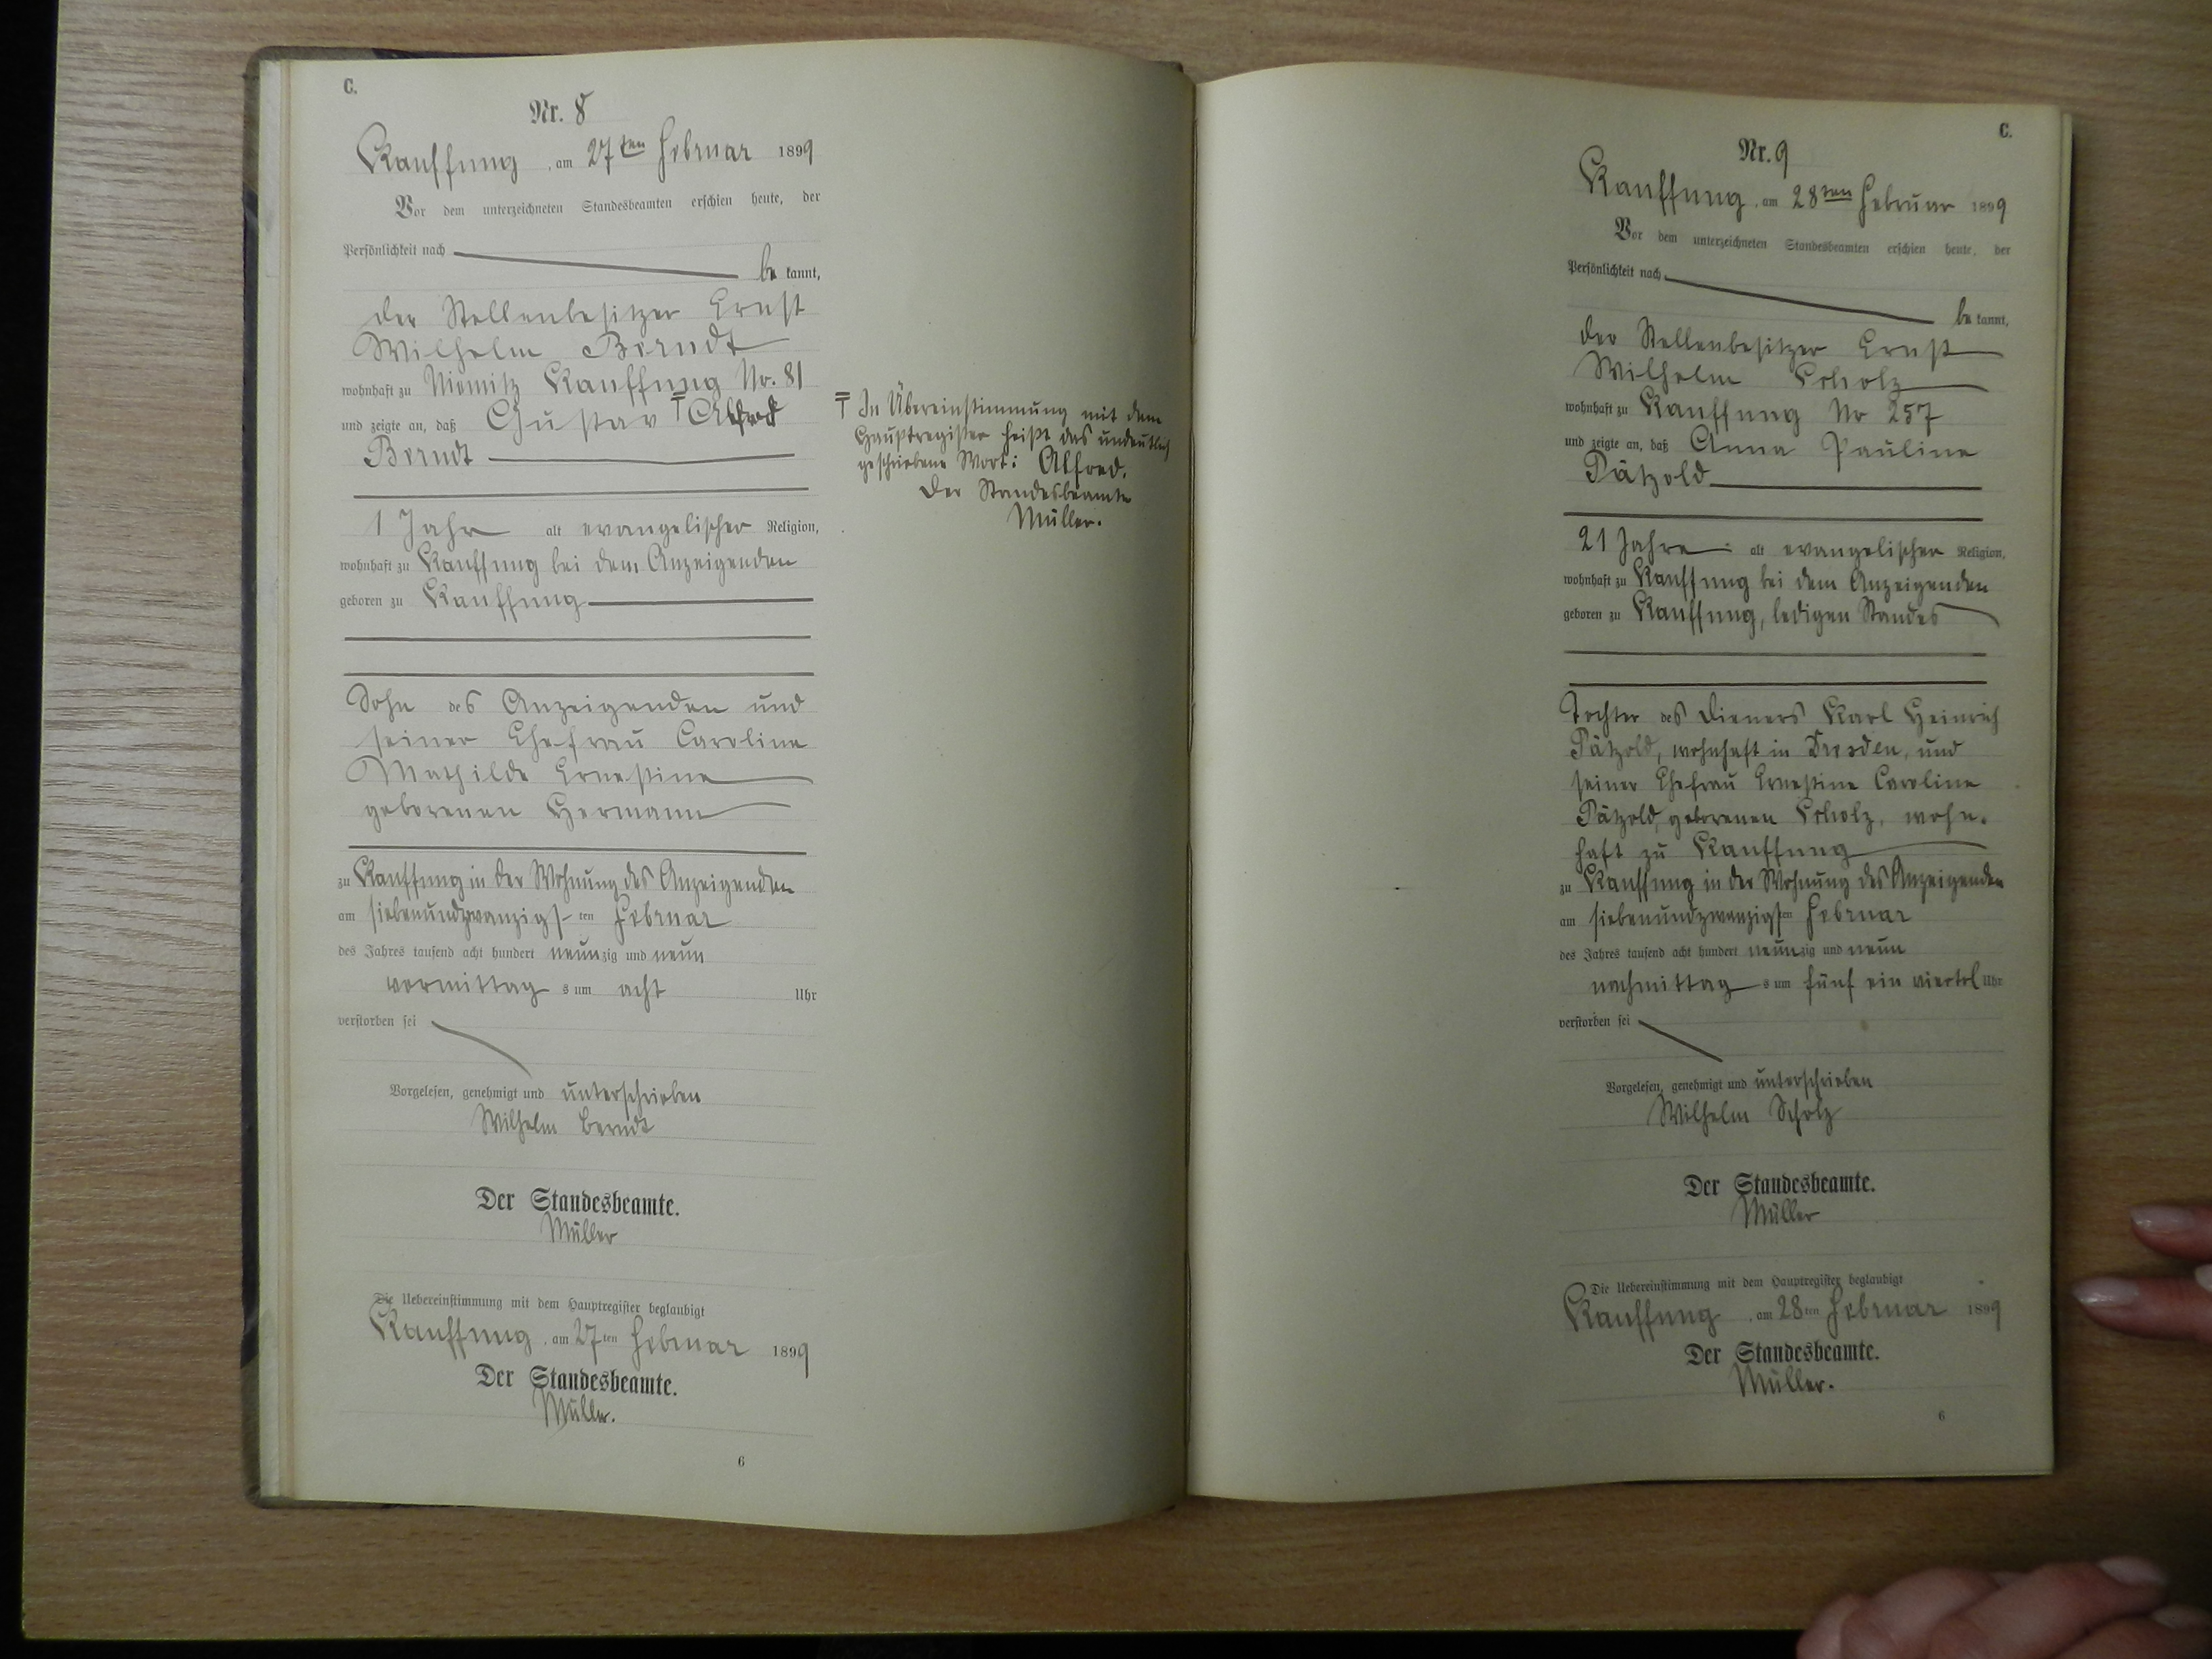 C.
Nr. 8
Kauffung, am 27ten Februar 1899
Vor dem unterzeichneten Standesbeamten erschien heute, der
Persönlichkeit nach
bekannt,
der Stellenbesitzer Ernst
Wilhelm Berndt
wohnhaft zu Niemitz Kauffung Nr. 81
und zeigte an, daß Gustav ╤ Alfred
Berndt
1 Jahr alt evangelischer Religion,
wohnhaft zu Kauffung bei dem Anzeigenden
geboren zu Kauffung
Sohn des Anzeigenden und
seiner Ehefrau Caroline
Mathilde Ernestine
geborenen Hermann
zu Kauffung in der Wohnung des Anzeigenden
am siebenundzwanzigsten Februar
des Jahres tausend acht hundert neunzig und neun
vormittags um acht Uhr
verstorben sei
Vorgelesen, genehmigt und unterschrieben
Wilhelm Berndt
Der Standesbeamte.
Müller
Die Uebereinstimmung mit dem Hauptregister beglaubigt
Kauffung, am 27ten Februar 1899
Der Standesbeamte.
Müller.
6
╤ In Übereinstimmung mit dem
Hauptregister heißt das undeutlich
geschriebene Wort: Alfred.
Der Standesbeamte
Müller.
C.
Nr. 9
Kauffung, am 28ten Februar 1899
Vor dem unterzeichneten Standesbeamten erschien heute, der
Persönlichkeit nach
bekannt,
der Stellenbesitzer Ernst
Wilhelm Scholz
wohnhaft zu Kauffung Nr 257
und zeigte an, daß Anna Pauline
Pätzold
21 Jahre alt evangelischer Religion,
wohnhaft zu Kauffung bei dem Anzeigenden
geboren zu Kauffung, ledigen Standes
Tochter des Dieners Karl Heinrich
Pätzold, wohnhaft in Dresden, und
seiner Ehefrau Ernestine Caroline
Pätzold, geborenen Scholz, wohn-
haft zu Kauffung
zu Kauffung in der Wohnung des Anzeigenden
am siebenundzwanzigsten Februar
des Jahres tausend acht hundert neunzig und neun
nachmittags um fünf ein viertel Uhr
verstorben sei
Vorgelesen, genehmigt und unterschrieben
Wilhelm Scholz
Der Standesbeamte.
Müller
Die Uebereinstimmung mit dem Hauptregister beglaubigt
Kauffung, am 28ten Februar 1899
Der Standesbeamte.
Müller.
6